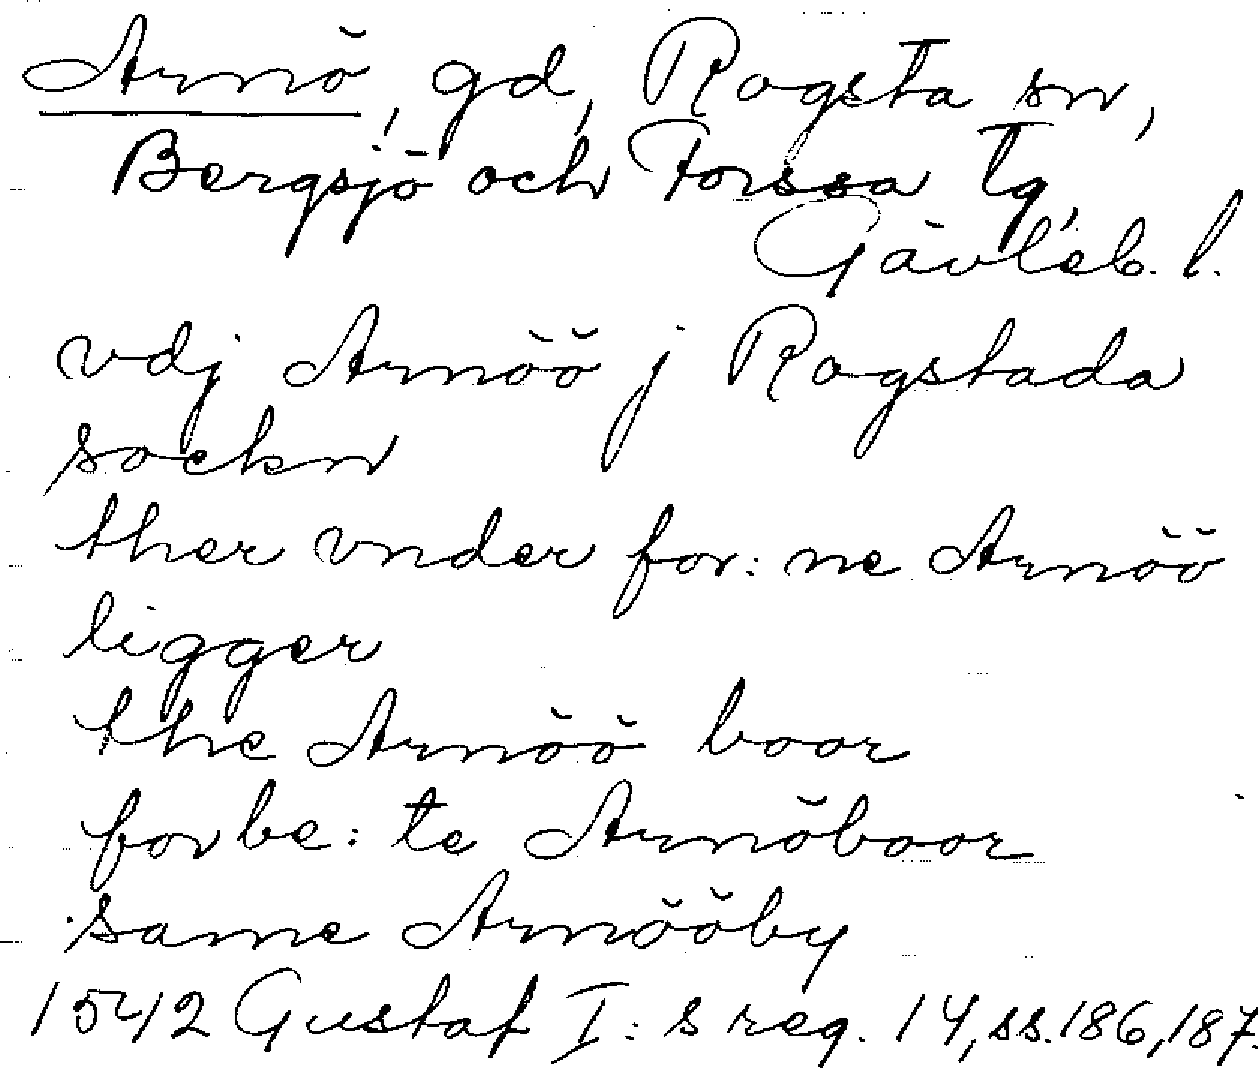 Arnö, gd, Rogsta sn,
Bergsjö och Forssa tg,
Gävleb. l.
vdj Arnöö j Rogstada
sockn
ther vnder for: ne Arnöö
ligger
the Arnöö boor
forbe: te Arnöboor
same Arnööby
1542 Gustaf I: s reg. 14, ss. 186, 187.